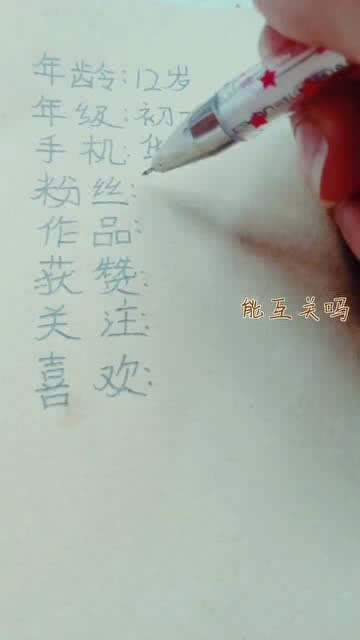 年龄:12岁
年级:初
手机:
粉丝:
作品:
获赞:
关注:
喜欢:
能互关吗